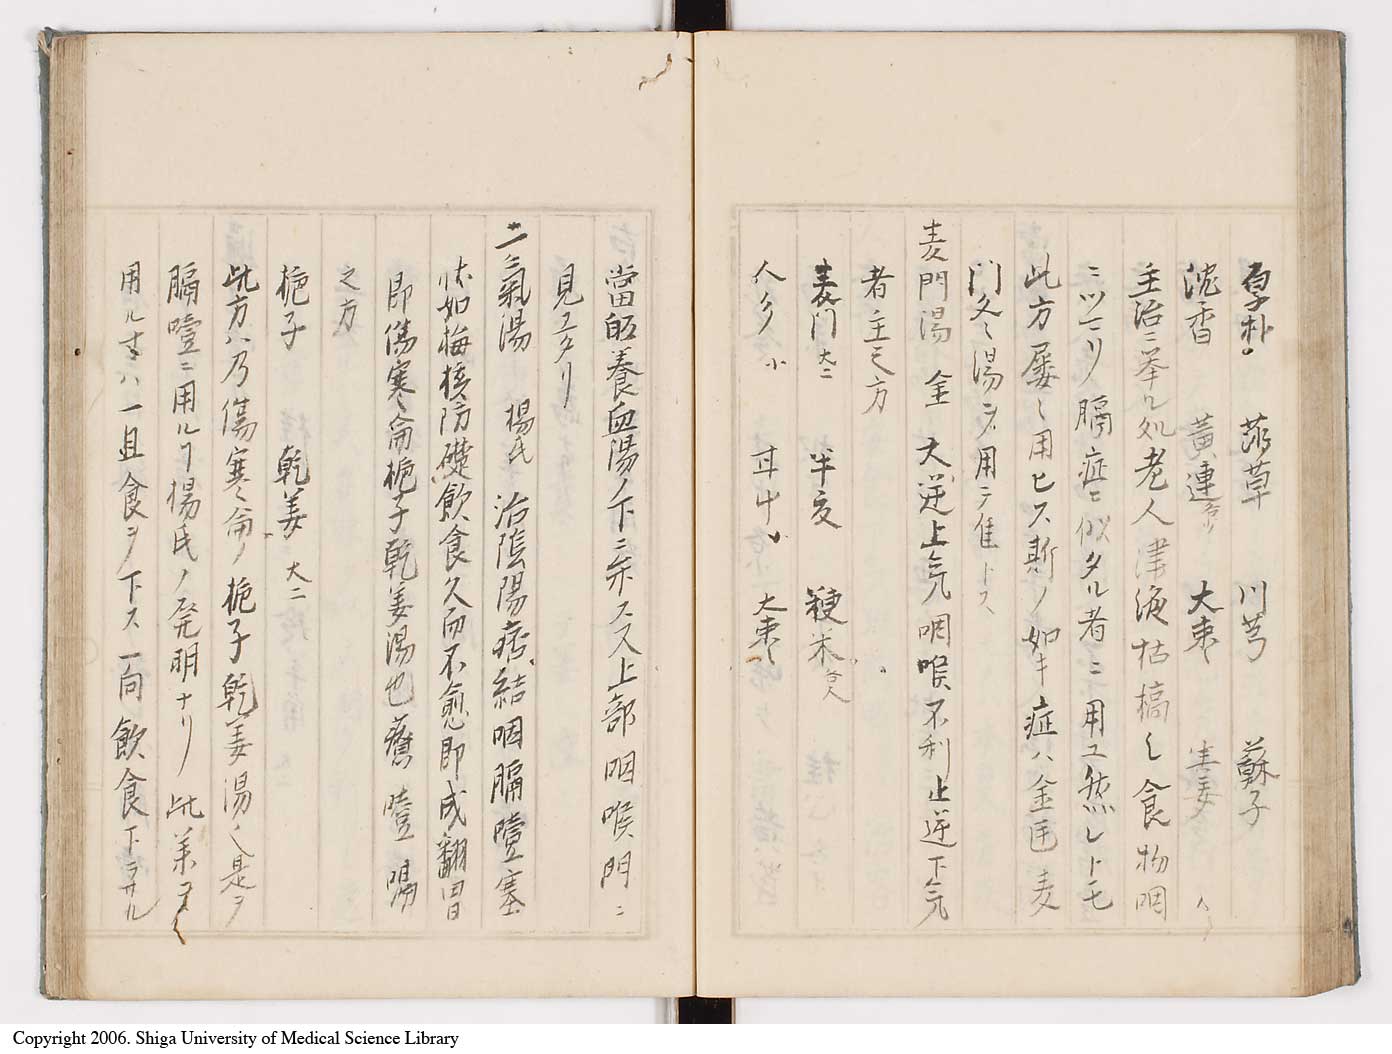 厚朴 莎草 川芎 蘇子
沈香 黄連 大棗 生姜
主治ニ挙ル処老人津液枯槁乄食物咽
ニツマリ膈症ヒ似タル者ニ用ユ然レトモ
此方屡々用ヒス斯ノ如キ症ハ金匱麦
門冬湯ヲ用テ佳トス
麦門湯 金 大逆上気咽喉不利止逆下気
者主之方
麦門 大二 半夏 粳米 各八
人参 小 甘草 大棗
當皈養血湯ノ下ニ示スス上部咽喉門ニ
見エタリ
二氣湯 楊氏 治陰陽痞結咽膈噎塞
状如梅核防礙飲食久而不愈即成翻胃
即傷寒論梔子乾姜湯也舊噎膈
之方
梔子 乾姜 大二
此方ハ乃傷寒論ノ梔子乾姜湯也是ヲ
膈噎ニ用ルヿ楊氏ノ発明ナリ此薬ヨク
用ル寸ハ一且食ヲ下ス一向飲食下ラサル
Copyright 2006. Shiga University of Medical Science Library